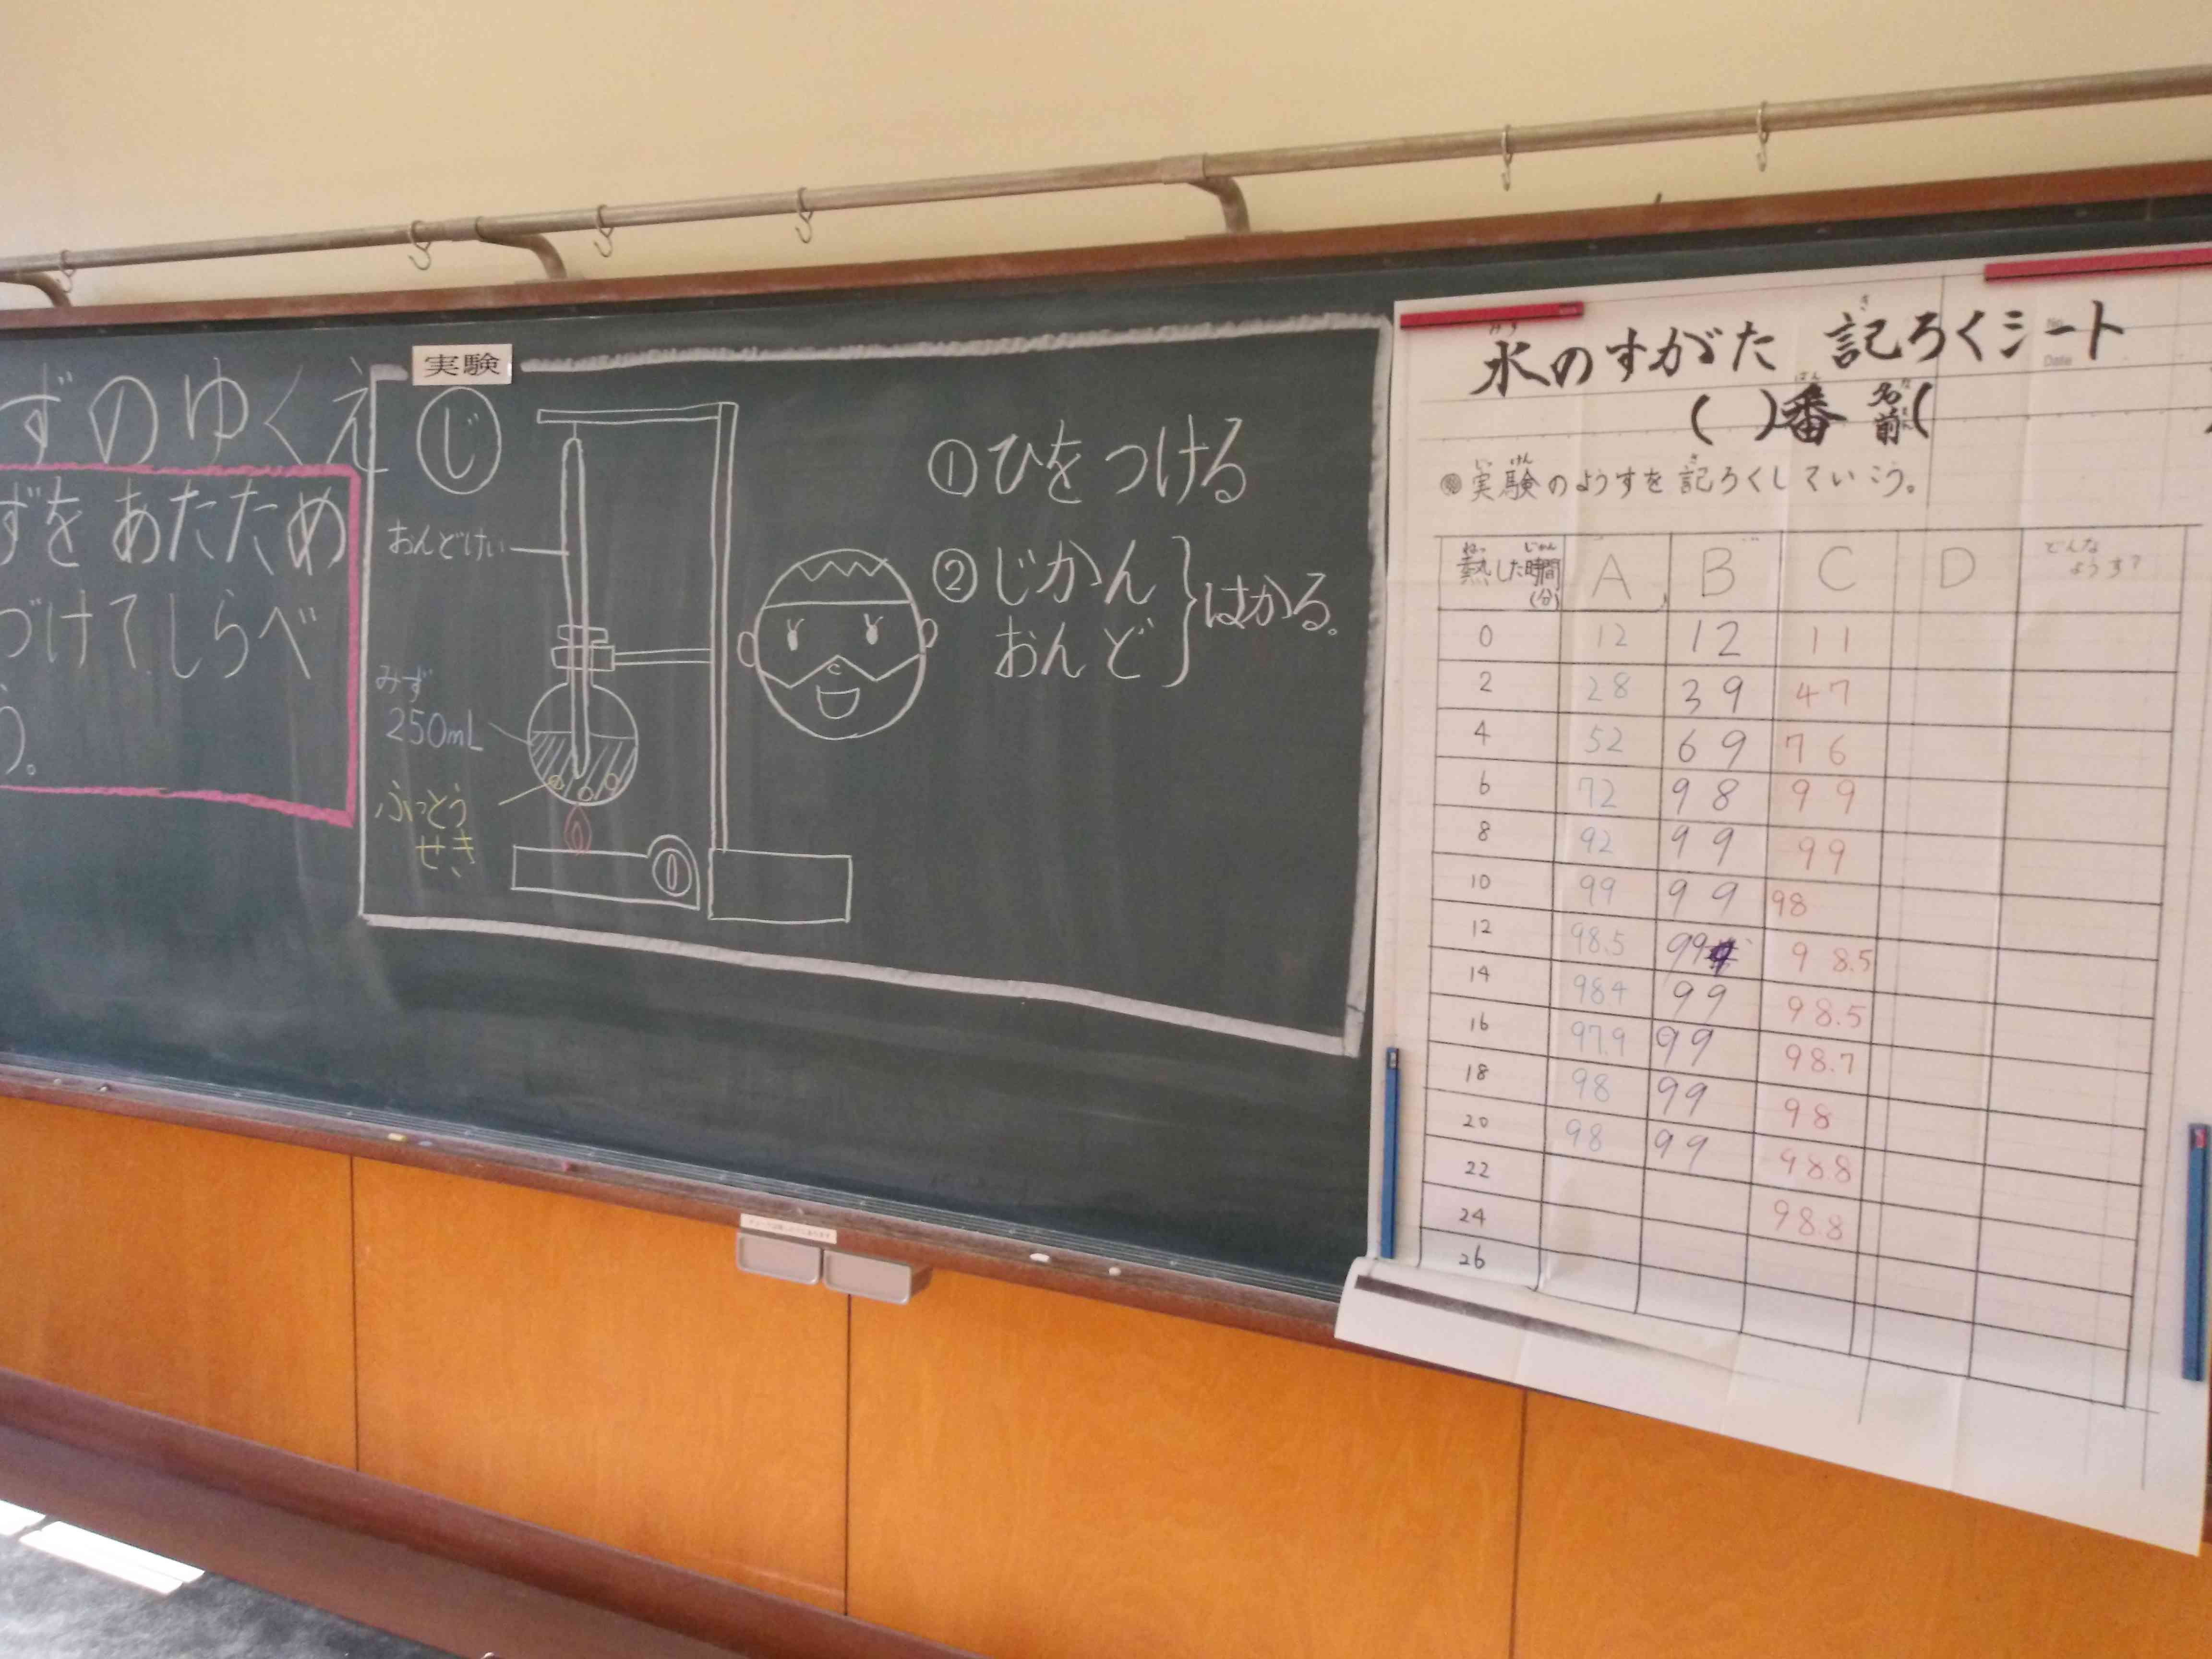 ずのゆくえ
ずをあたため
づけてしらべ
う。
実験
じ
おんどけい
みず
250mL
ふっとう
せき
①ひをつける
②じかん
おんど
はかる。
水のすがた 記ろくシート
みず き
( )番 名前(
ばん なまえ
実験のようすを記ろくしていこう。
じっけん き
熱した時間(分) A B C D どんなようす?
ねっ じかん
0 12 12 11
2 28 39 47
4 52 69 76
6 72 98 99
8 92 99 99
10 99 99 98
12 98.5 99 98.5
14 98.4 99 98.5
16 97.9 99 98.7
18 98 99 98
20 98 99 98.8
22 98.8
24
26
No.
Date